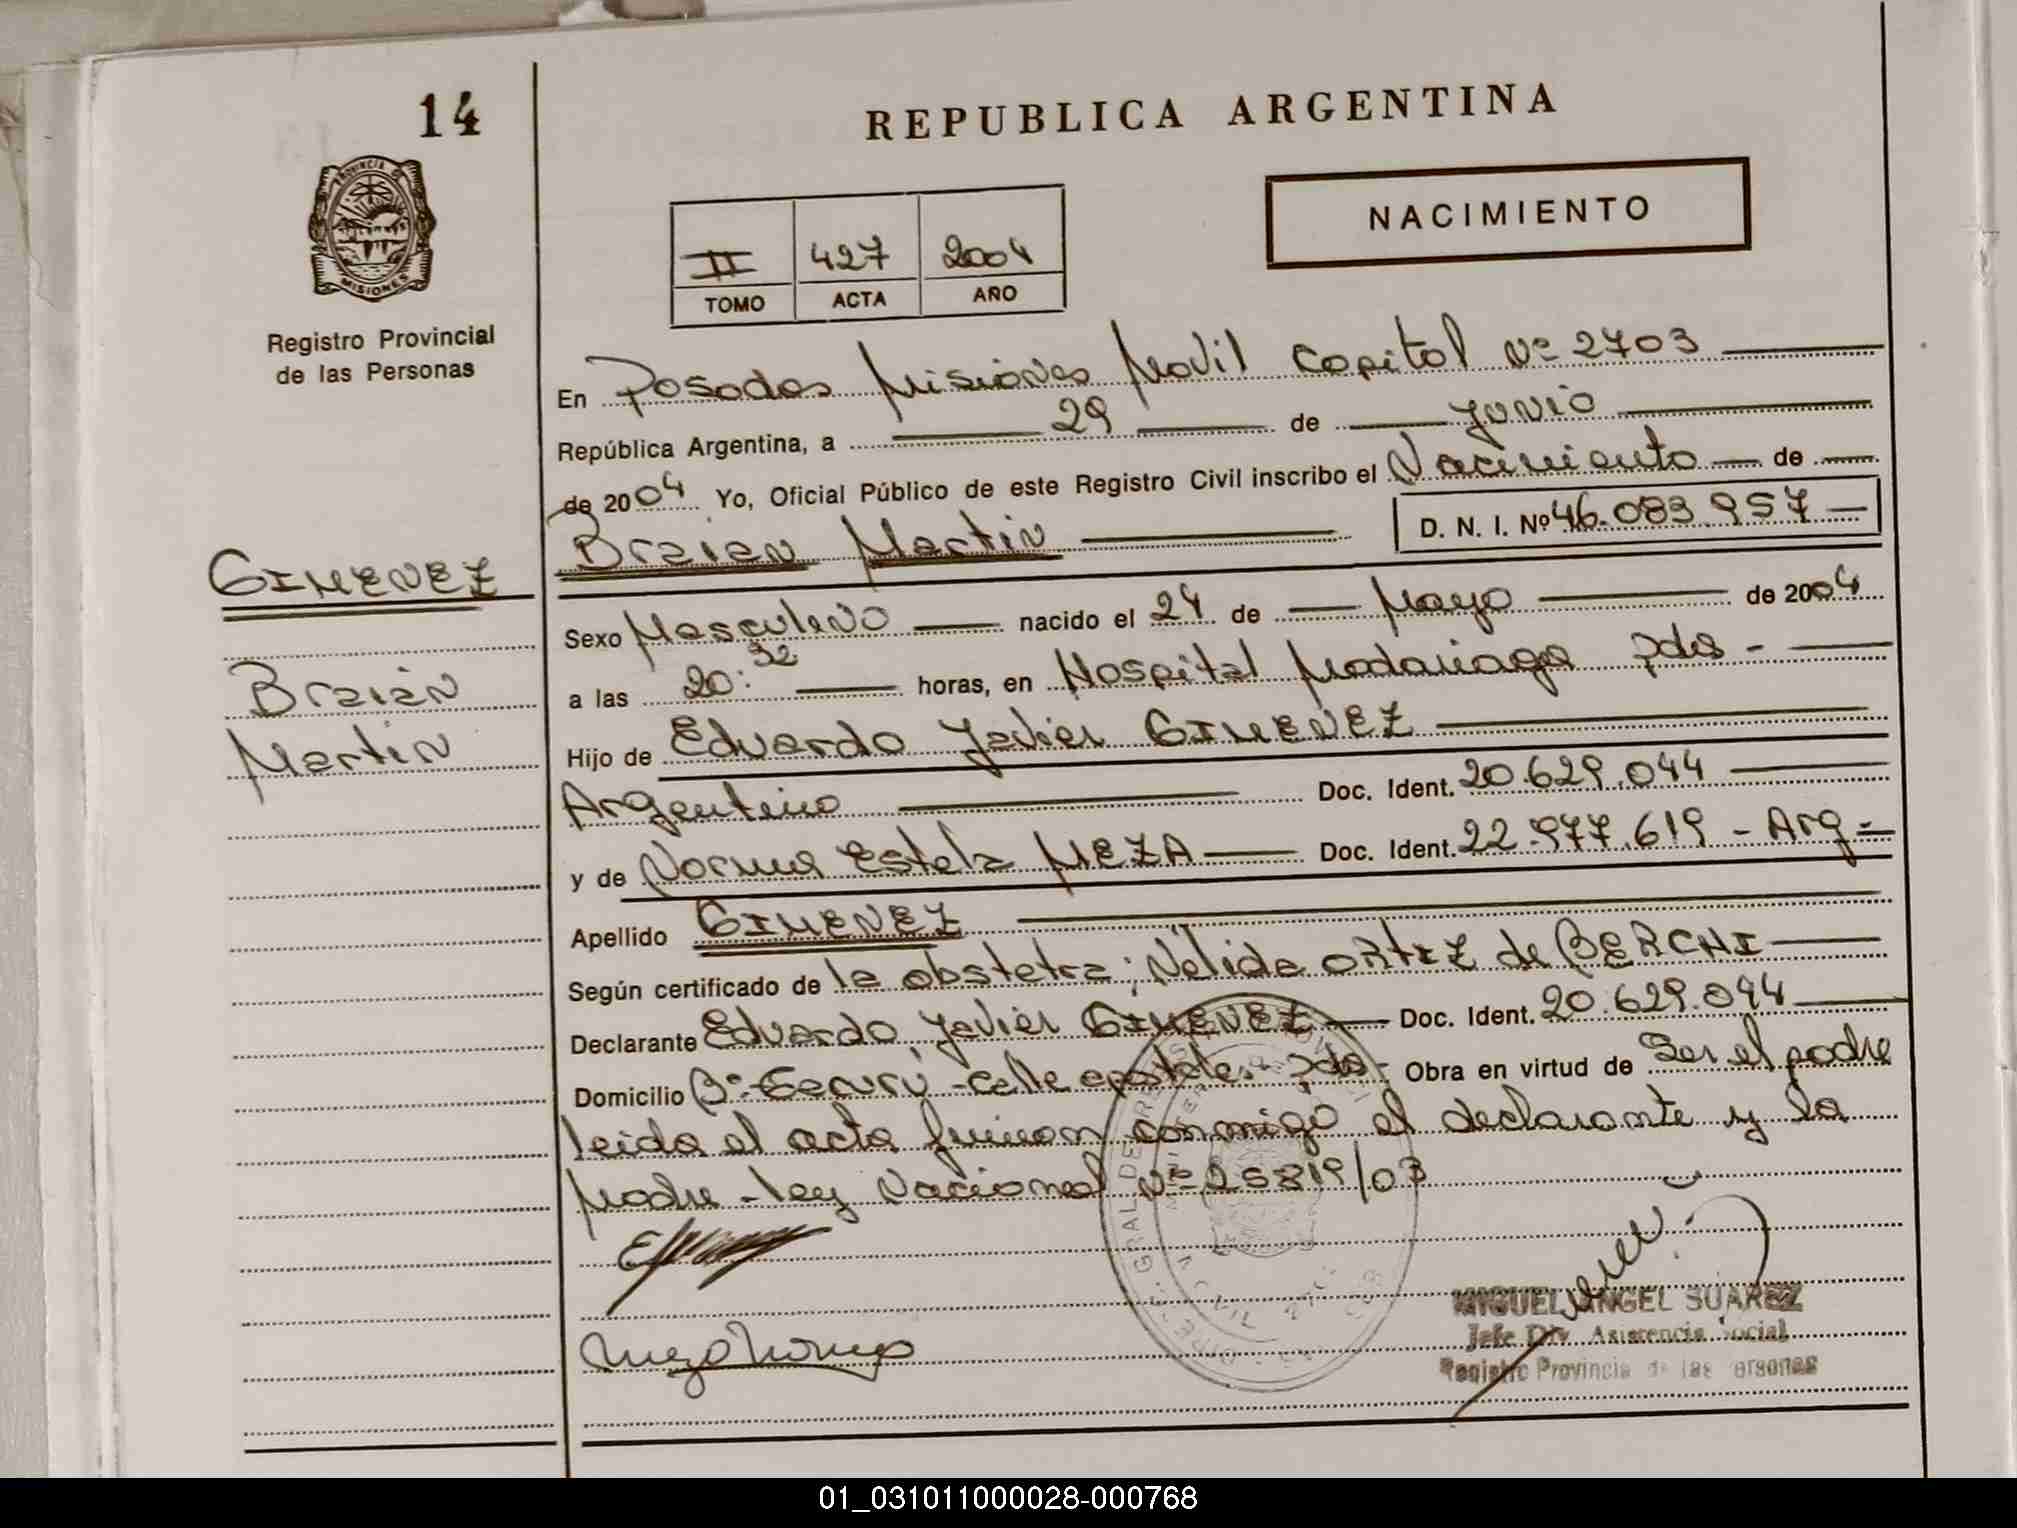 14
REPUBLICA ARGENTINA
PROVINCIA DE
MISIONES
Registro Provincial
de las Personas
NACIMIENTO
II 427 2004
TOMO ACTA AÑO
En Posadas Misiones Movil Capital Nº 2703
República Argentina, a 29 de Junio
de 2004 Yo, Oficial Público de este Registro Civil inscribo el Nacimiento de
Braian Martin D. N. I. Nº 46.083.957
GIMENEZ
Braian
Martin
Sexo Masculino nacido el 24 de Mayo de 2004
a las 20:32 horas, en Hospital Madariaga Pdas
Hijo de Eduardo Javier GIMENEZ
Argentino Doc. Ident. 20.629.044
y de Norma Estela MEZA Doc. Ident. 22.977.619 - Arg -
Apellido GIMENEZ
Según certificado de la obstetra; Nelida ORTIZ de BERCHI
Declarante Eduardo Javier GIMENEZ Doc. Ident. 20.629.044
Domicilio Bº - calle Pdas - Obra en virtud de Ser el padre
leida el acta firman conmigo el declarante y la
Madre - ley Nacional Nº 25819/03
Meza Norma
MIGUEL ANGEL SUAREZ
Jefe Div. Asistencia Social
Registro Provincial de las Personas
01_031011000028-000768